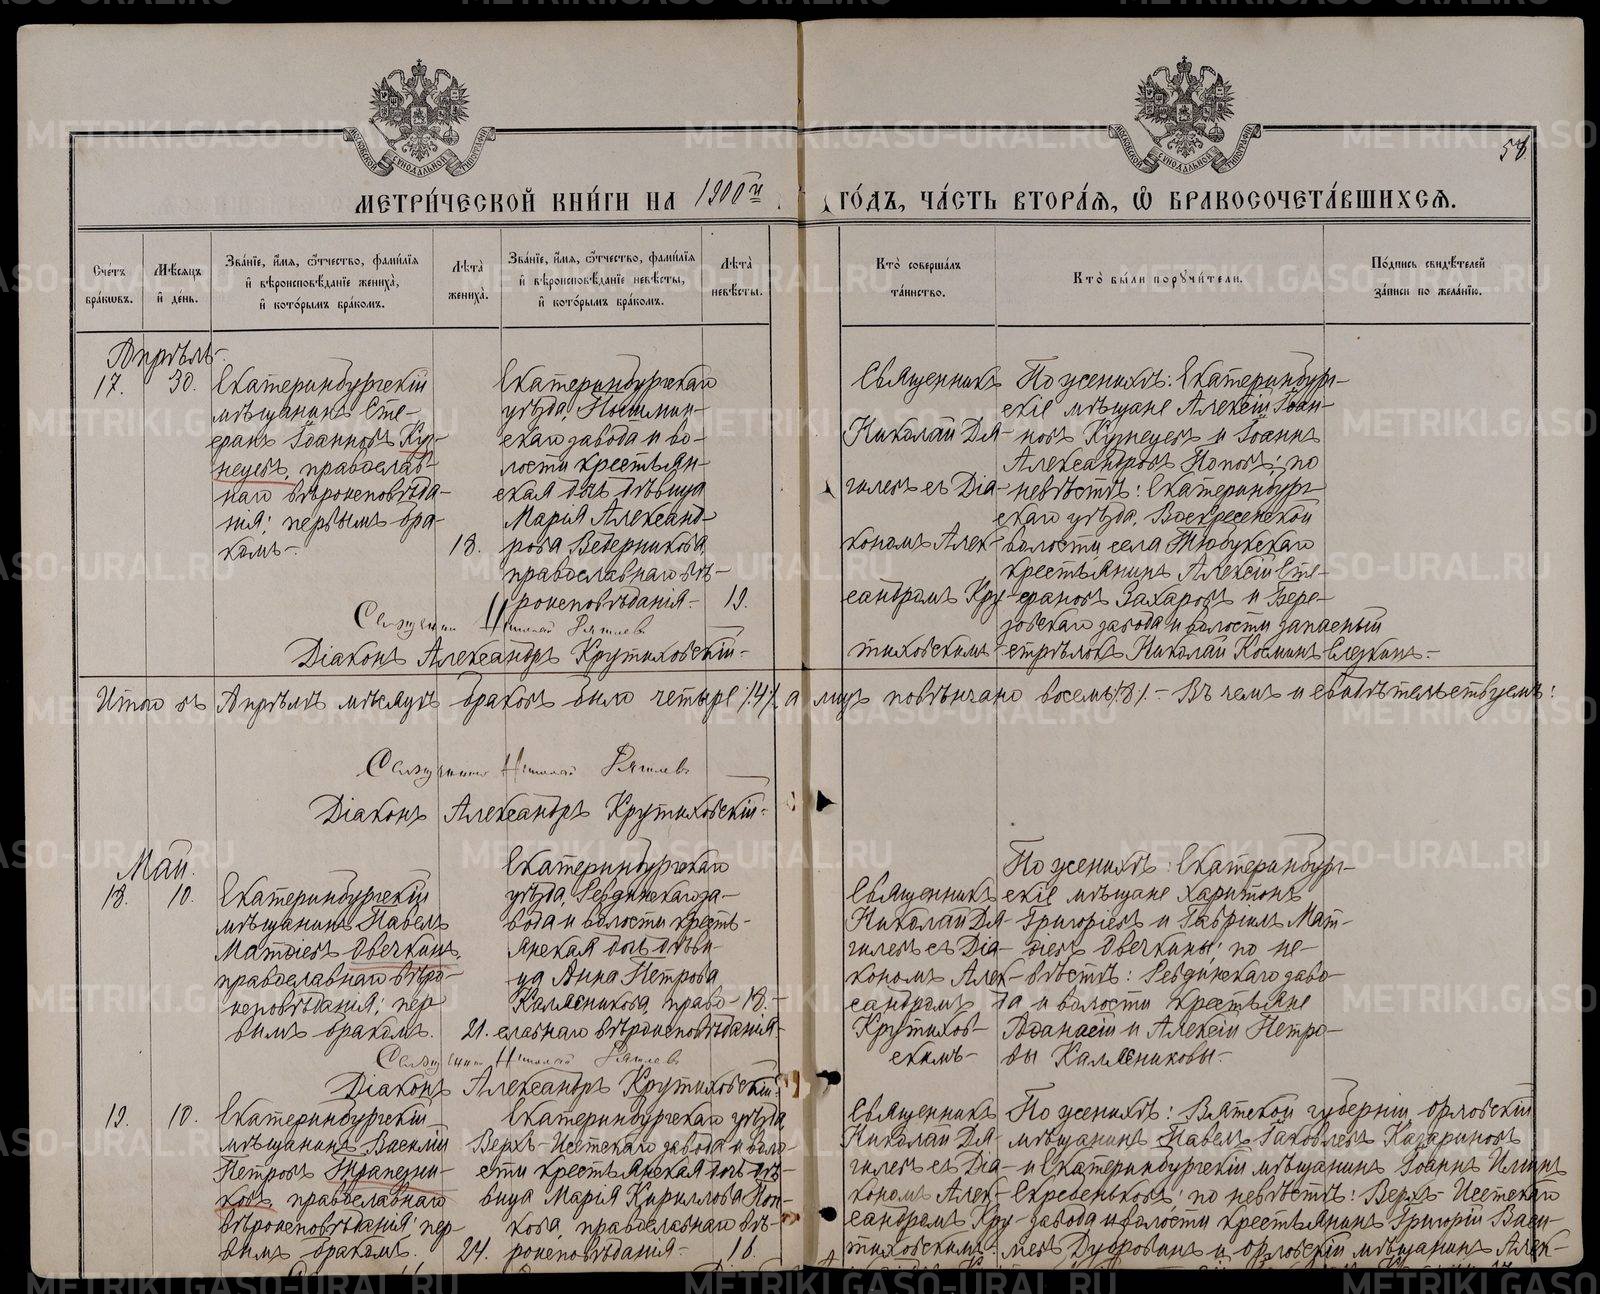 58.
МЕТРИ́ЧЕСКОЙ КНИ́ГИ НА 1900й ГО́ДЪ, ЧА́СТЬ ВТОРА́Я, Ѽ БРАКОСОЧЕТА́ВШИХСЯ.
Сче́тъ бра́ковъ.
Мѣ́сяцъ и́ де́нь.
Зва́нїе, и́мя, ѿтчество, фами́лїя
и́ вѣроисповѣ́данїе жениха̀,
и́ кото́рымъ бра́комъ.
Лѣта̀ жениха̀.
Зва́нїе, и́мя, ѿтчество, фами́лїя
и́ вѣроисповѣ́данїе невѣ́сты,
и́ кото́рымъ бра́комъ.
Лѣта̀ невѣ́сты.
Кто̀ соверша́лъ
та́инство.
Кто̀ бы́ли пору́чители.
По́дпись свидѣ́телей
за́писи по жела́нїю.
Апрѣль.
17.
30.
Екатеринбургскій
мѣщанинъ Сте-
фанъ Іоанновъ Куз-
нецовъ, православ-
наго вѣроисповѣда-
нія; первымъ бра-
комъ.
18.
Екатеринбургскаго
уѣзда,
скаго завода и во-
лости крестьян-
ская дочь дѣвица
Марія Александ-
рова Ведерникова,
православнаго вѣ-
роисповѣданія.
19.
Священникъ
Николай Дя-
гилевъ съ Діа-
кономъ Алек-
сандромъ Кру-
тиховскимъ
По женихѣ: Екатеринбург-
скіе мѣщане Алексій Іоан-
новъ Кузнецовъ и Іоаннъ
Александровъ Поповъ; по
невѣстѣ: Екатеринбург-
скаго уѣзда, Воскресенской
волости села Тюбукскаго
крестьянинъ Алексій Сте-
фановъ Захаровъ и Бере-
зовскаго завода и волости запасный
стрѣлокъ Николай Косминъ
Священникъ Николай Дягилевъ
Діаконъ Александръ Крутиховскій.
Итого въ Апрѣлѣ мѣсяцѣ браковъ было четыре /:4:/, а лицъ повѣнчано восемь /:8:/. Въ чемъ и свидѣтельствуемъ:
Священникъ Николай Дягилевъ
Діаконъ Александръ Крутиховскій.
Май.
18.
10.
Екатеринбургскій
мѣщанинъ Павелъ
Матѳіевъ Овечкинъ,
православнаго вѣро-
исповѣданія; пер-
вымъ бракомъ.
21.
Екатеринбургскаго
уѣзда, Ревдинскаго за-
вода и волости кресть-
янская дочь дѣви-
ца Анна Петрова
Калясникова, право-
славнаго вѣроисповѣданія.
18.
Священникъ
Николай Дя-
гилевъ съ Діа-
кономъ Алек-
сандромъ
Крутихов-
скимъ
По женихѣ: Екатеринбург-
скіе мѣщане Харитонъ
Григоріевъ и Гавріилъ Мат-
ѳіевъ Овечкины; по не-
вѣстѣ: Ревдинскаго заво-
да и волости крестьяне
Аѳанасій и Алексій Петро-
вы Калясниковы.
Священникъ Николай Дягилевъ
Діаконъ Александръ Крутиховскій.
19.
10.
Екатеринбургскій
мѣщанинъ Василій
Петровъ Трапезни-
ковъ, православнаго
вѣроисповѣданія; пер-
вымъ бракомъ.
24.
Екатеринбургскаго уѣзда,
Верхъ-Исетскаго завода и воло-
сти крестьянская дочь дѣ-
вица Марія Кириллова Поп-
кова, православнаго вѣ-
роисповѣданія.
16.
Священникъ
Николай Дя-
гилевъ съ Діа-
кономъ Алек-
сандромъ Кру-
тиховскимъ.
По женихѣ: Вятской губерніи, орловскій
мѣщанинъ Павелъ Іаковлевъ Казариновъ
и Екатеринбургскій мѣщанинъ Іоаннъ Илiинъ
Скребеньковъ; по невѣстѣ: Верхъ-Исетскаго
завода и волости крестьянинъ Григорій Васи-
льевъ Дубровинъ и орловскій мѣщанинъ Алек-